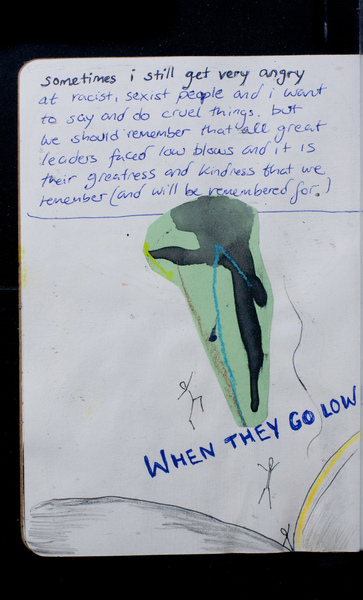 sometimes i still get very angry
at racist, sexist people and i want
to say and do cruel things. but
we should remember that all great
leaders faced low blows and it is
their greatness and kindness that we
remember (and will be remembered for.)
WHEN THEY GO LOW